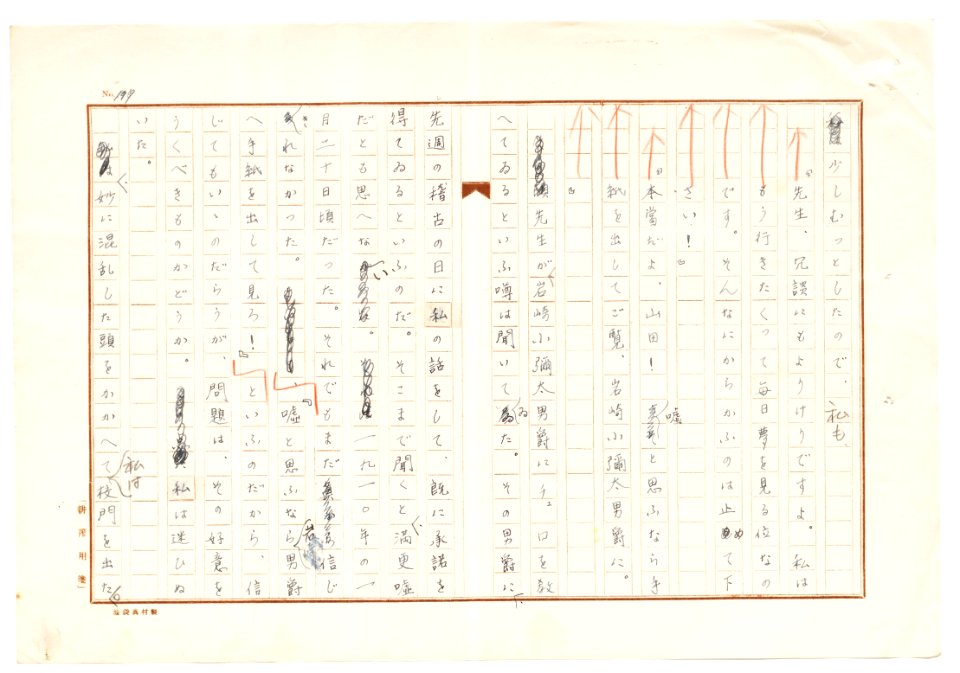 No. 199
少しむっとしたので、私も、
『先生、冗談にもよりけりですよ。私は
もう行きたくって毎日夢を見る位なの
です。そんなにからかふのは止めて下
さい!』
『本当だよ、山田! 嘘と思ふなら手
紙を出してご覧、岩崎小彌太男爵に。
』
先生が岩崎小彌太男爵にチェロを教
へてゐるといふ噂は聞いてゐた。その男爵に、
先週の稽古の日に私の話をして、既に承諾を
得てゐるといふのだ。そこまで聞くと満更嘘
だとも思へない。一九一〇年の一
月二十日頃だった。それでもまだ信じ
れなかった。『嘘と思ふなら岩男爵
へ手紙を出して見ろ!』といふのだから、信
じてもいゝのだらうが、問題は、その好意を
うくべきものかどうか。私は迷ひぬ
いた。
妙に混乱した頭をかかへて私は校門を出た。